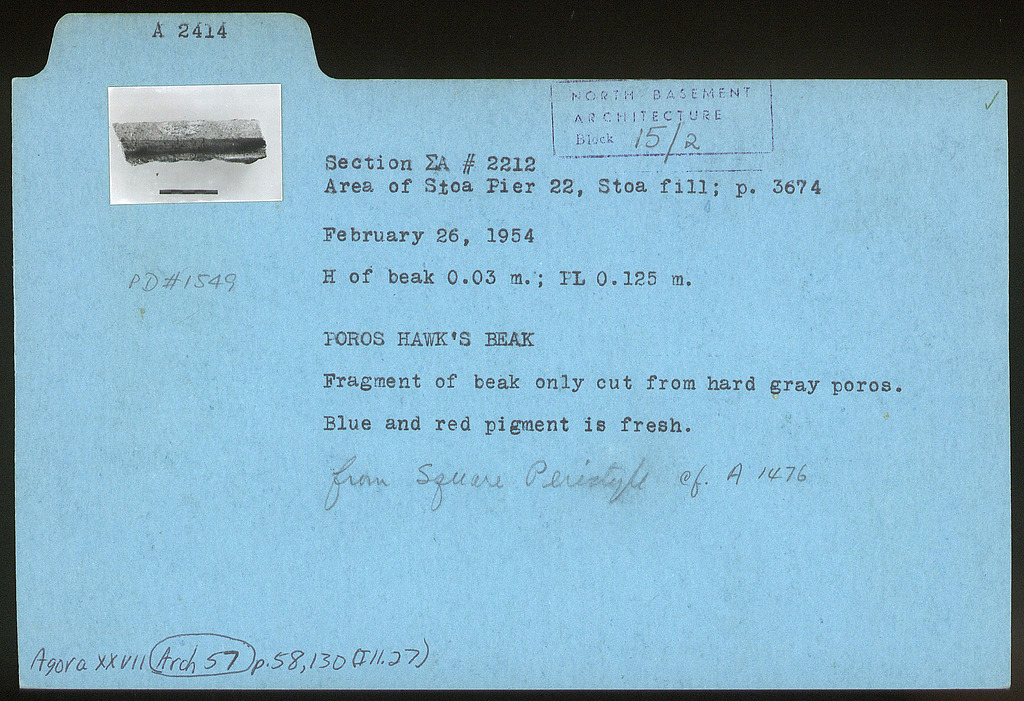 A 2414
NORTH BASEMENT
ARCHITECTURE
Block 15/2
Section ΣA # 2212
Area of Stoa Pier 22, Stoa fill; p. 3674
February 26, 1954
PD#1549
H of beak 0.03 m.; PL 0.125 m.
POROS HAWK'S BEAK
Fragment of beak only cut from hard gray poros.
Blue and red pigment is fresh.
from Square Peristyle cf. A 1476
Agora XXVII Arch 57 p.58,130 (Ill.27)